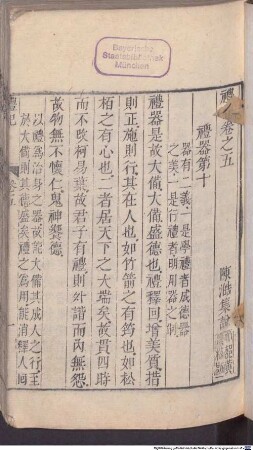 Bayerische
Staatsbibliothek
München
禮記卷之五
陳澔集說
禮器第十
器有二義一是學禮者成德器
之美一是行禮者明用器之制
禮器是故大備大備盛德也禮釋回增美質措
則正施則行其在人也如竹箭之有筠也如松
柏之有心也二者居天下之大端矣故貫四時
而不改柯易葉故君子有禮則外諧而內無怨
故物無不懷仁鬼神饗德
以禮爲治身之器故能大備其成人之行至
於大備則其德盛矣禮之爲用能消釋人回
禮記
卷五
一